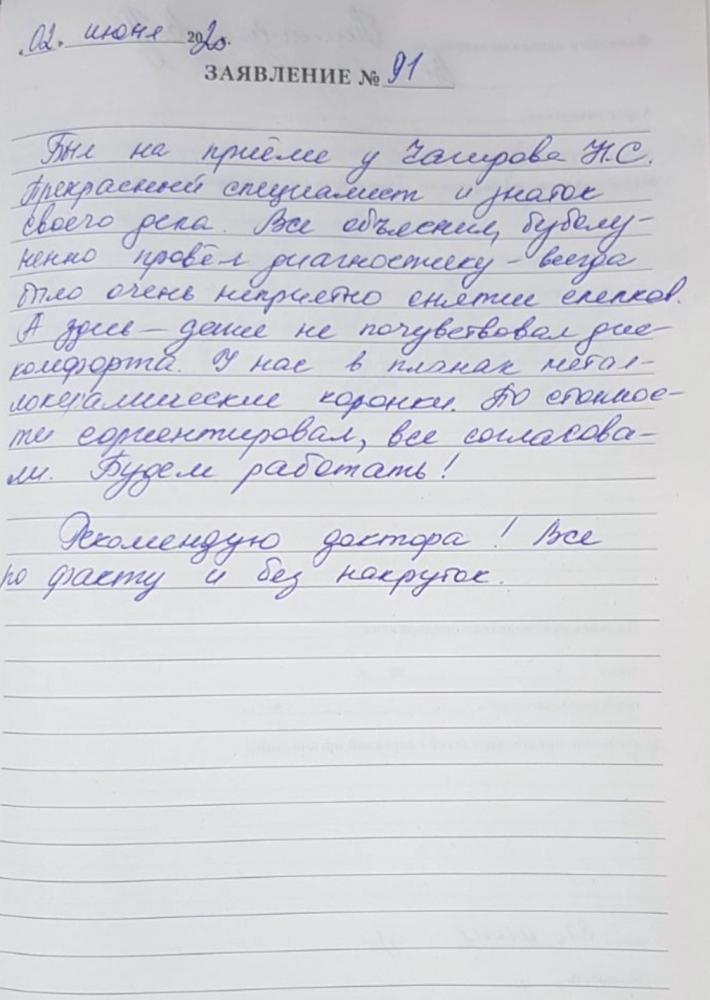 02. июня 2020г.
ЗАЯВЛЕНИЕ № 91
Был на приёме у Чагирова Н.С.
Прекрасный специалист и знаток
своего дела. Все объяснил,
ненно провёл диагностику – всегда
было очень неприятно снятии слепков.
А здесь – даже не почувствовал дис-
комфорта. У нас в планах метал-
локерамические коронки. По стоимос-
ти сориентировал, все согласова-
ли. Будем работать!
Рекомендую доктора! Все
по факту и без накруток.